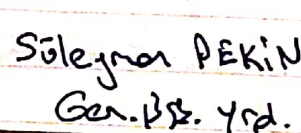 Süleyman PEKİN
Gen. Bşk. Yrd.